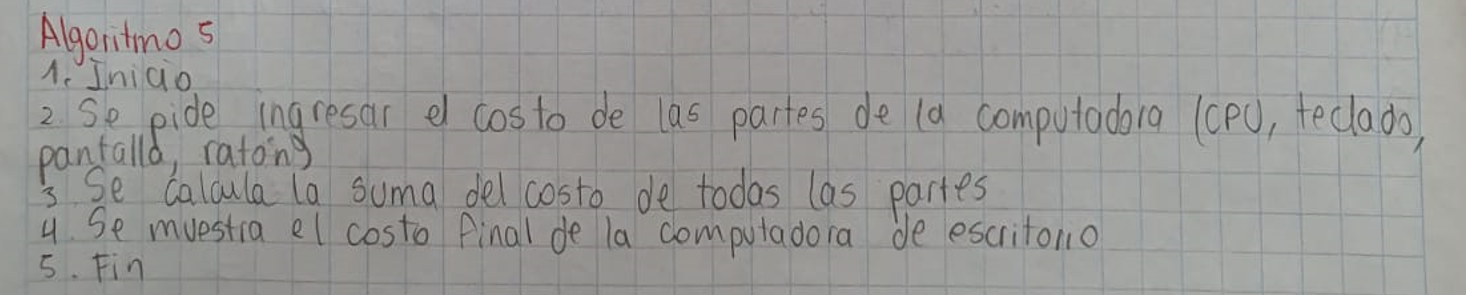 Algoritmo 5
1. Inicio
2. Se pide ingresar el costo de las partes de la computadora (CPU, teclado,
pantalla, ratón)
3. Se calcula la suma del costo de todas las partes
4. Se muestra el costo final de la computadora de escritorio
5. Fin